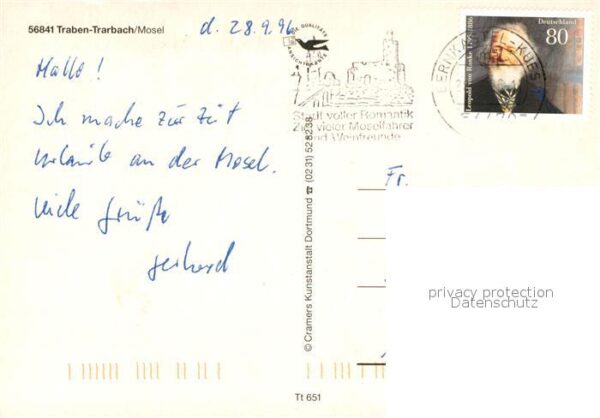 56841 Traben-Trarbach/Mosel
d. 28.9.96
Hallo!
Ich mache zur Zeit
Urlaub an der Mosel.
Viele Grüße
Gerhard
Stadt voller Romantik
Ziel vieler Moselfahrer
und Weinfreunde
BERNKASTEL-KUES
Deutschland
80
Leopold von Ranke 1795-1886
Fr.
© Cramers Kunstanstalt Dortmund ☎ (0231) 52 82 38
Tt 651
privacy protection
Datenschutz